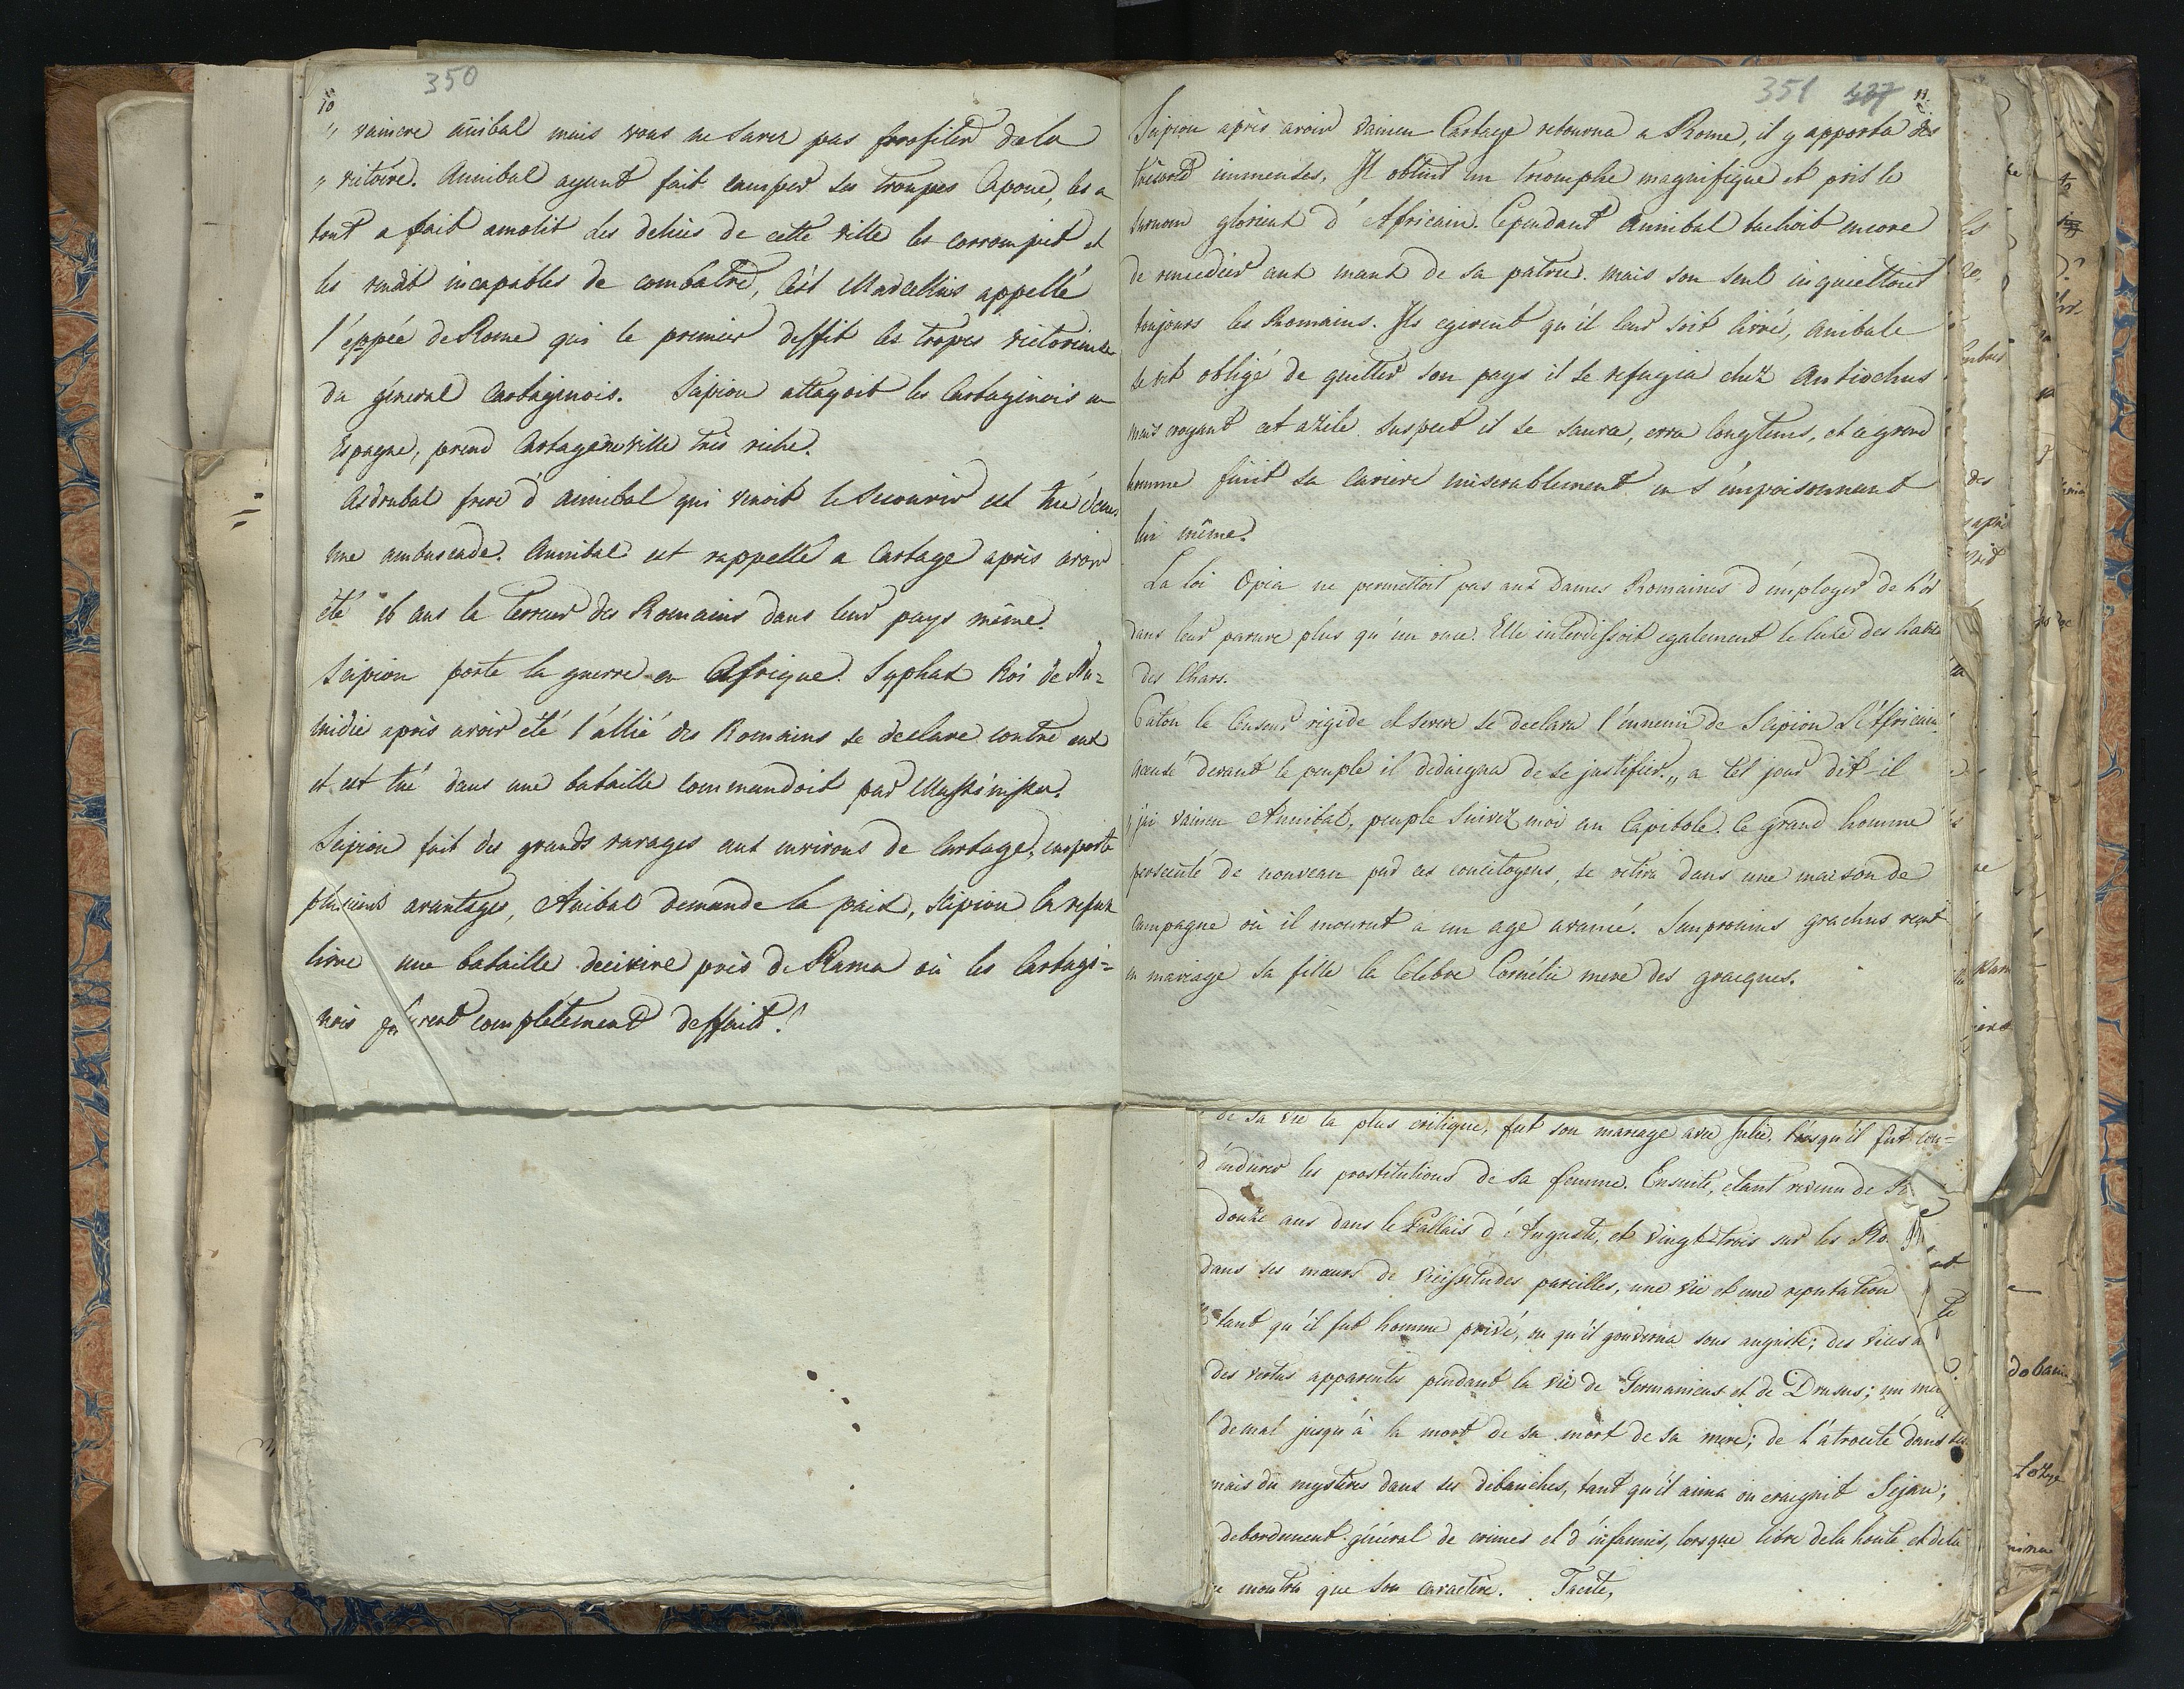 350
10
" vaincre anibal mais vous ne savez pas profiter de la
" victoire. Annibal ayant fait camper ses troupes Capoue, les a
tout a fait amolit les delices de cette ville les corrompit et
les rendit incapables de combatre, C'est Marcellus appellé
l'éppée de Rome qui le premier deffit les tropes victorieuse
du géneral Cartaginois. Scipion attaqoit les Cartaginois en
Espagne, prend Cartagène ville très riche.
Asdrubal frere d'annibal qui venoit le secourir est tué dans
une ambuscade. Annibal est rappellé a Cartage après avoir
été 16 ans la terreur des Romains dans leur pays même.
Scipion porte la guerre en Afrique. Syphax Roi de Nu=
midie après avoir été l'allié des Romains se declare contre eux
et est tué dans une bataille commandoit par Massinissa.
Scipion fait des grands ravages aux environs de Cartage, emporte
plusieurs avantages, Anibal demande la paix, Scipion la refuse
livre une bataille decisive près de Rama où les Cartagi=
nois furent complétement deffait!
351 437 11.
Scipion après avoir vaincu Cartage retourna a Rome, il y apporta des
trésors immenses, Il obtint un triomphe magnifique et prit le
surnom glorieux d'Affricain. Cependant Annibal tachoit encore
de remedier aux maux de sa patrie. mais son seul inquiettoit
toujours les Romains. Ils egirent qu'il leur soit livré, Anibale
se vit obligé de quitter son pays il se refugia chez Antiochus
mais croyant cet azile suspect il se sauva, erra longtems, et ce grand
homme finit sa cariere miserablement en s'empoisonnant
lui même.
La loi Opia ne permettoit pas aux Dames Romaines d'employer de l'or
dans leur parure plus qu'un once. Elle interdissoit egalement le luxe des habits
des Chars.
Caton le Censeur rigide et severe se declara l'ennemi de Scipion L'Affricain
accusé devant le peuple il dedaigna de se justifier. " a tel jour dit-il
j'ai vaincu Annibal, peuple suivez moi au Capitole. Ce grand homme
persecuté de nouveau par ces concitoyens, se retira dans une maison de
campagne où il mourut a un age avancé. Sempronius grachus reçut
en mariage sa fille la célebre Cornélie mere des gracques.
de sa vie la plus critique, fut son mariage avec Julie, lorsqu'il fut con=
d'endurer les prostitutions de sa femme. Ensuite, etant revenu de
douze ans dans le Pallais d'Auguste, et vingt-trois sur les Ro
dans ses mœurs de vicissitudes pareilles, une vie et une reputation
tant qu'il fut homme privé, ou qu'il gouverna sous auguste; des vices
des vertus apparentes pendant la vie de Germanicus et de Drusus; un
de mal jusqu'à la mort de sa mort de sa mere; de l'atrocité dans
mais du mystères dans ses débauches, tant qu'il aima ou craignit Sejan;
debordement géneral de crimes et d'infamies, lorsque libre de la honte et de la
montra que son caractère. Tacite,